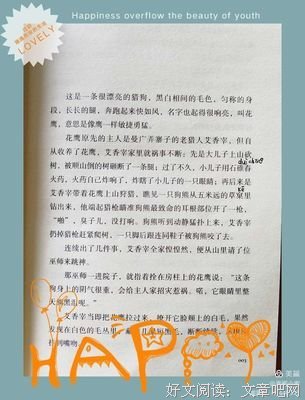 Happiness overflow the beauty of youth
LOVELY
这是一条很漂亮的猎狗，黑白相间的毛色，匀称的身
段，长长的腿，奔跑起来快如风，名字也起得很响亮，叫花
鹰，意思是像鹰一样敏捷勇猛。
花鹰原先的主人是曼广弄寨子的老猎人艾香宰，但自
从收养了花鹰，艾香宰家里就祸事不断：先是大儿子上山砍
树，被顺山倒的树砸断了一条腿；过了不久，小儿子用石碓舂
火药，火药自己炸响了，炸瞎了小儿子的一只眼睛；再后来是
艾香宰带着花鹰上山狩猎，瞧见一只狗熊从五米远的草窠里
钻出来，他端起猎枪瞄准狗熊最致命的耳根部位开了一枪，
“啪”，臭子儿，没打响。狗熊听到动静猛扑上来，艾香宰
扔掉猎枪赶紧爬树，一只脚后跟连同鞋子被狗熊咬了去。
连续出了几件事，艾香宰全家惶惶然，便从山里请了位
巫师来跳神。
那巫师一进院子，就指着拴在房柱上的花鹰说：“这条
狗身上的阴气很重，会给主人家招灾惹祸。喏，它眼睛里整
天
黑泪呢。”
艾香宰当即把花鹰拉过来，撩开它脸颊上的白毛，果然
发现在白色的毛丛里
儿黑短毛，断断续续，从眼
挂到嘴吻。
003
HAPPY
美篇
好文阅读：文章吧网